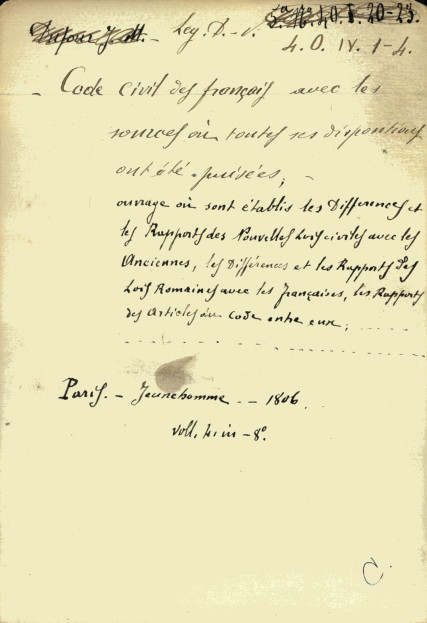 Dufour J. M. - Leg. D. - V. 4. O. I. 20-23.
4. O. IV. 1-4.
- Code civil des français avec les
sources où toutes ses dispositions
ont été puisées; -
ouvrage où sont établis les Differences et
les Rapports des Nouvelles Lois civiles avec les
Anciennes, les Différences et les Rapports Des
Lois Romaines avec les Françaises, les Rapports
des Articles du Code entre eux;
Paris. - Jeunehomme - - 1806
voll. 4. in - 8°.
C.